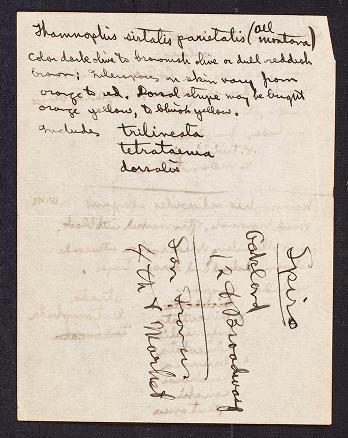 Thamnophis sirtalis parietalis (all montana)
Color dark olive to brownish olive or dull reddish
brown; in skin vary from
orange to red. Dorsal stripe may be bright
orange yellow, to bluish yellow.
includes trilineata
tetrataenia
dorsalis
Spiro
Oakland
12 & Broadway
San Fran.
4th & Market